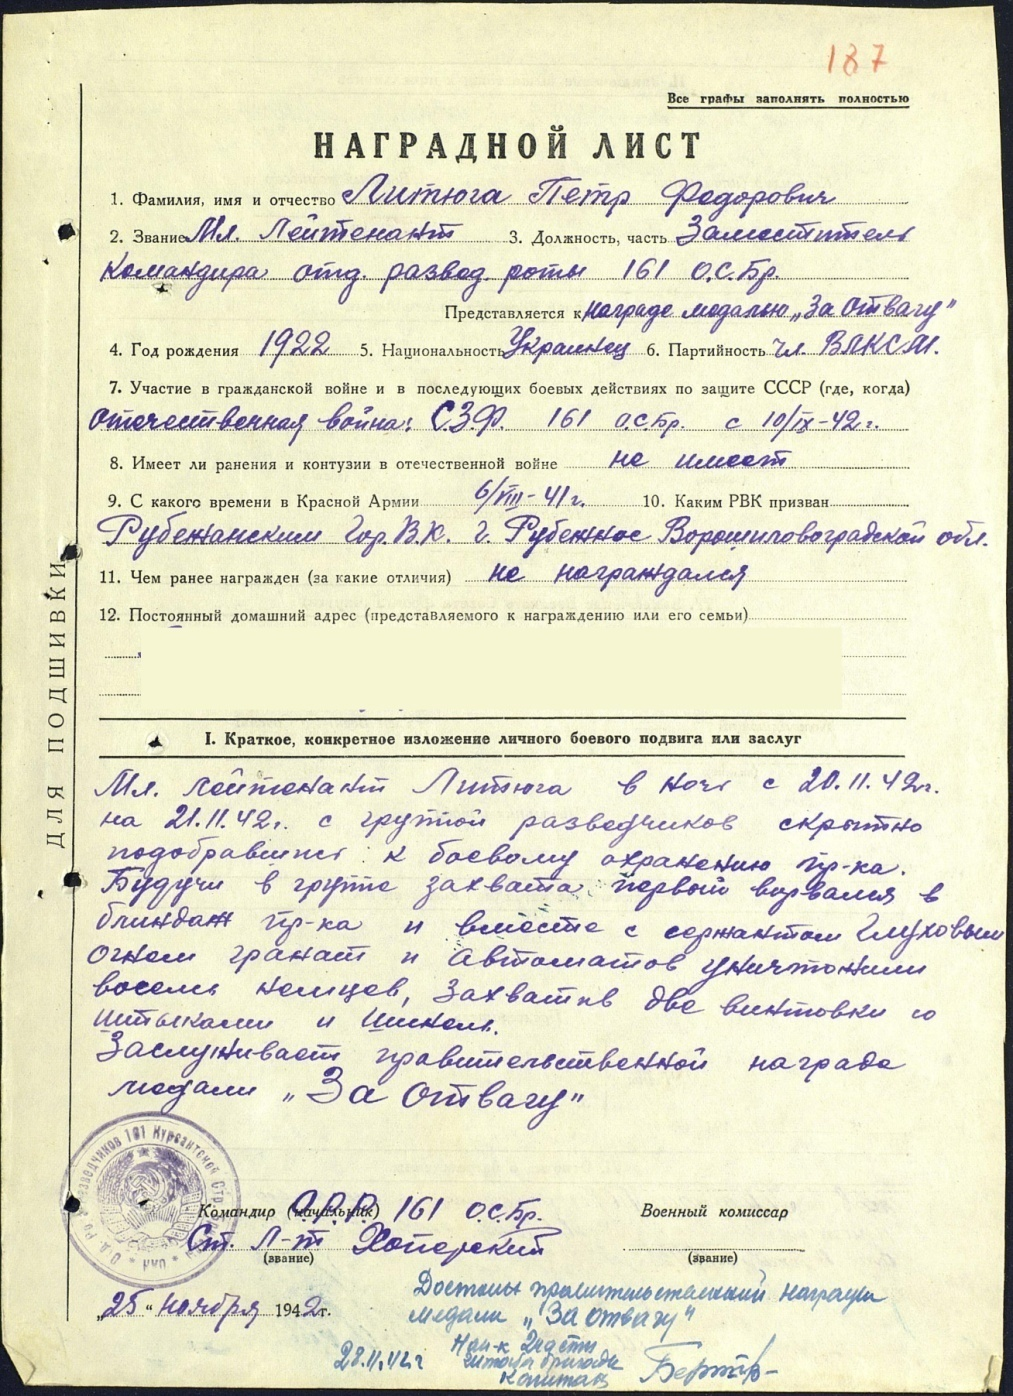 187
Все графы заполнять полностью
НАГРАДНОЙ ЛИСТ
1. Фамилия, имя и отчество Литюга Петр Федорович
2. Звание Мл. Лейтенант 3. Должность, часть Заместитель
командира отд. развед. роты 161 О.С.Бр.
Представляется к награде медалью „За Отвагу"
4. Год рождения 1922 5. Национальность Украинец 6. Партийность Чл. ВЛКСМ.
7. Участие в гражданской войне и в последующих боевых действиях по защите СССР (где, когда)
отечественная война: С.З.Ф. 161 О.С.Бр. с 10/IX-42г.
8. Имеет ли ранения и контузии в отечественной войне не имеет
9. С какого времени в Красной Армии 6/VIII-41г. 10. Каким РВК призван
Рубежанским Гор.В.К. г. Рубежное Ворошиловоградской обл.
11. Чем ранее награжден (за какие отличия) не награждался
12. Постоянный домашний адрес (представляемого к награждению или его семьи)
ДЛЯ ПОДШИВКИ
I. Краткое, конкретное изложение личного боевого подвига или заслуг
Мл. лейтенант Литюга в ночь с 20.11.42г.
на 21.11.42г. с группой разведчиков скрытно
подобравшись к боевому охранению пр-ка.
Будучи в группе захвата первый ворвался в
блиндаж пр-ка и вместе с сержантом Глуховым
огнем гранат и автоматов уничтожили
восемь немцев, захватив две винтовки со
штыками и шинель.
Заслуживает правительственной награде
медали „За Отвагу"
разведчиков 161 Курсантской
Командир (начальник) О.Р.Р. 161 О.С.Бр. Военный комиссар
Ст. Л-т Хоперский
(звание) (звание)
„25" ноября 1942г.
Достоин правительственной награды
медали „За отвагу"
Нач-к 2 части
штаба бригады
28.11.42г капитан